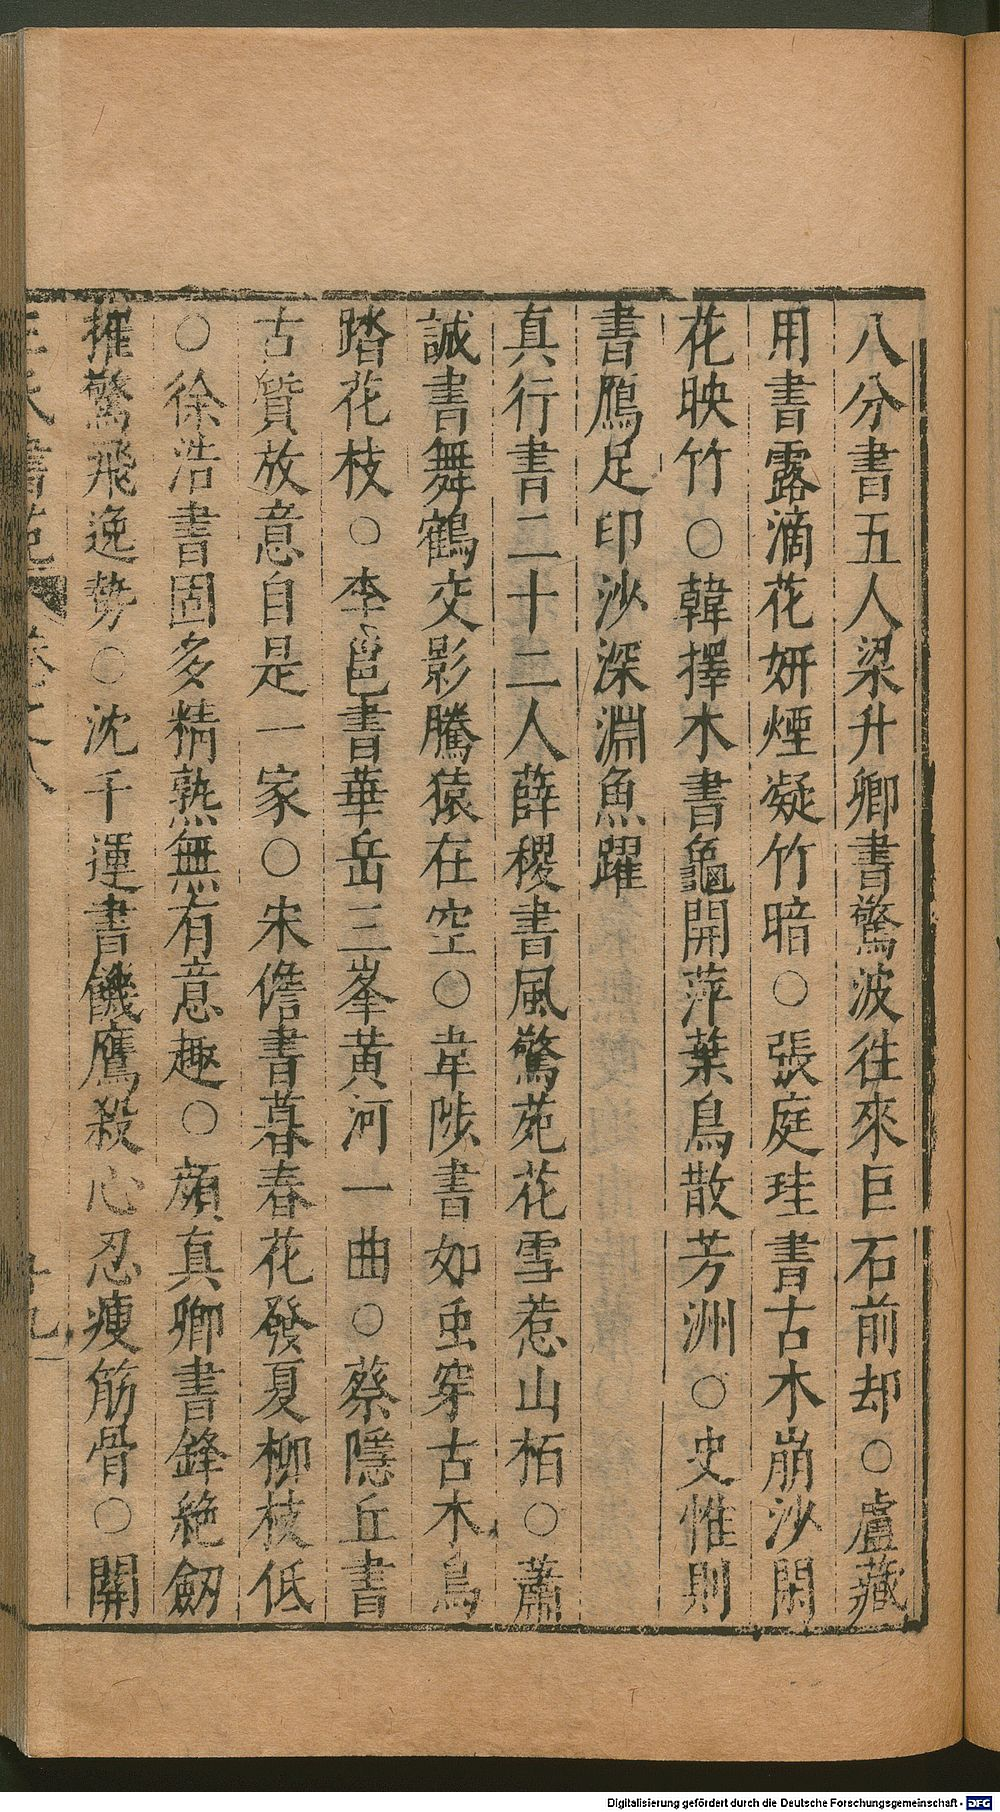 八分書五人梁升卿書驚波徃來巨石前却○盧藏
用書露滴花妍煙凝竹暗○張庭珪書古木崩沙閑
花映竹○韓擇木書龜開萍葉鳥散芳洲○史惟則
書鴈足印沙深淵魚躍
真行書二十二人薛稷書風驚苑花雪惹山栢○蕭
誠書舞鶴交影騰猿在空○韋陟書如虫穿古木鳥
踏花枝○李邕書華岳三峯黄河一曲○蔡隱丘書
古質放意自是一家○宋儋書暮春花發夏柳枝低
○徐浩書固多精熟無有意趣○顔真卿書鋒絶劒
摧驚飛逸勢○沈千運書饑鷹殺心忍瘦筋骨○關
王氏書苑
Digitalisierung gefördert durch die Deutsche Forschungsgemeinschaft - DFG